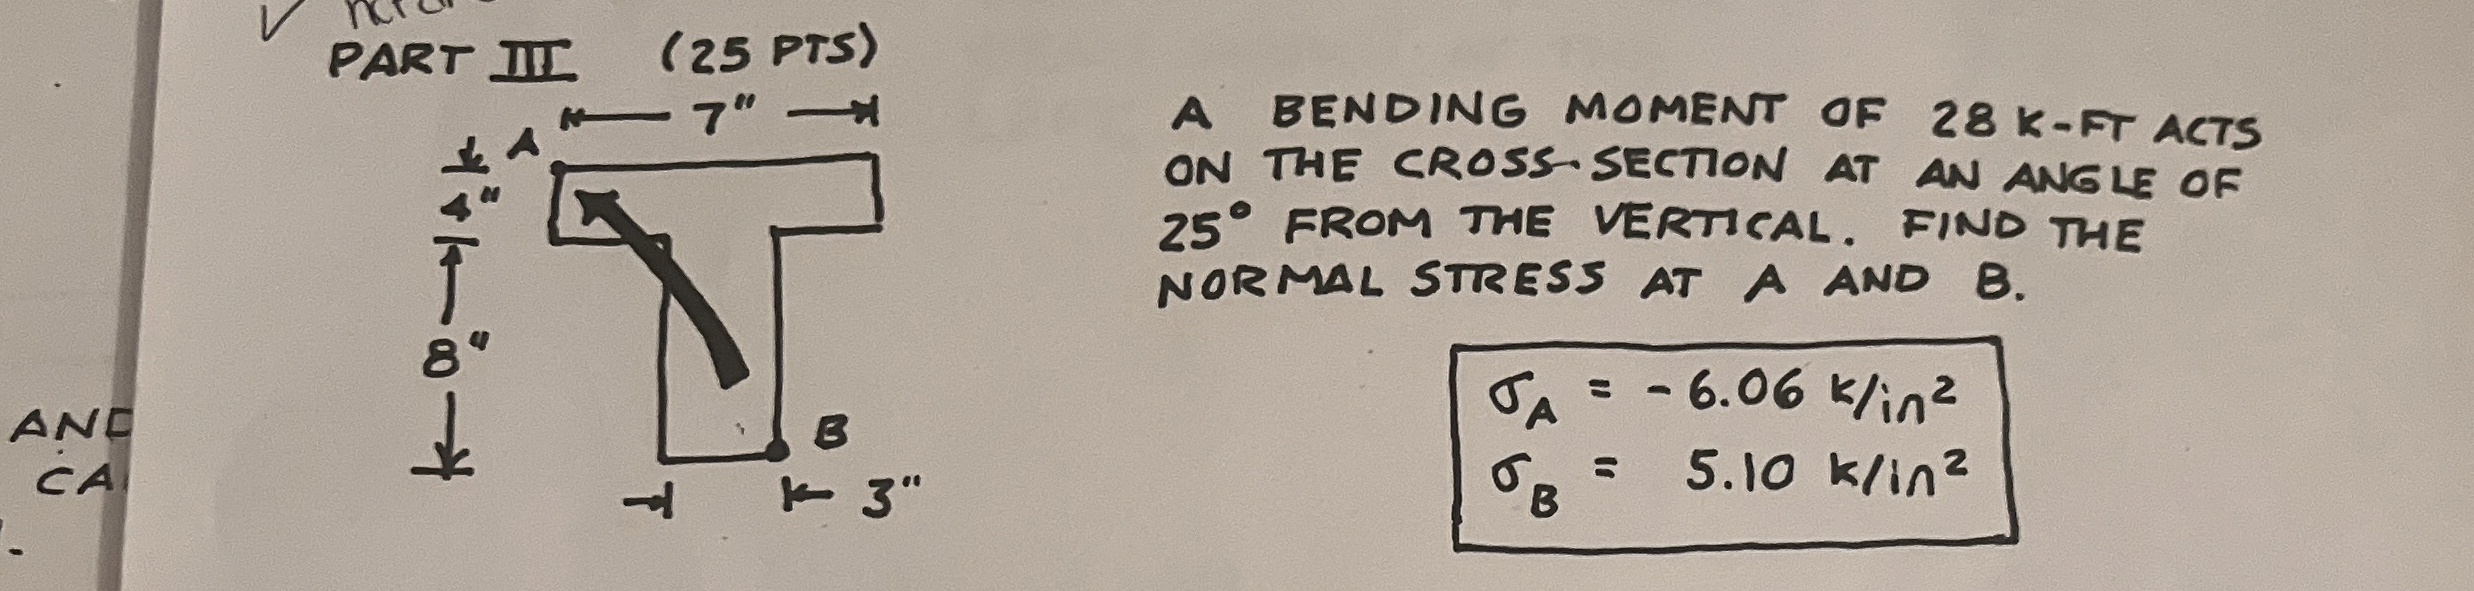 PART III (25 PTS)
7"
A
4"
8"
B
3"
A BENDING MOMENT OF 28 K-FT ACTS
ON THE CROSS-SECTION AT AN ANGLE OF
25° FROM THE VERTICAL. FIND THE
NORMAL STRESS AT A AND B.
σA = -6.06 k/in²
σB = 5.10 k/in²
AND